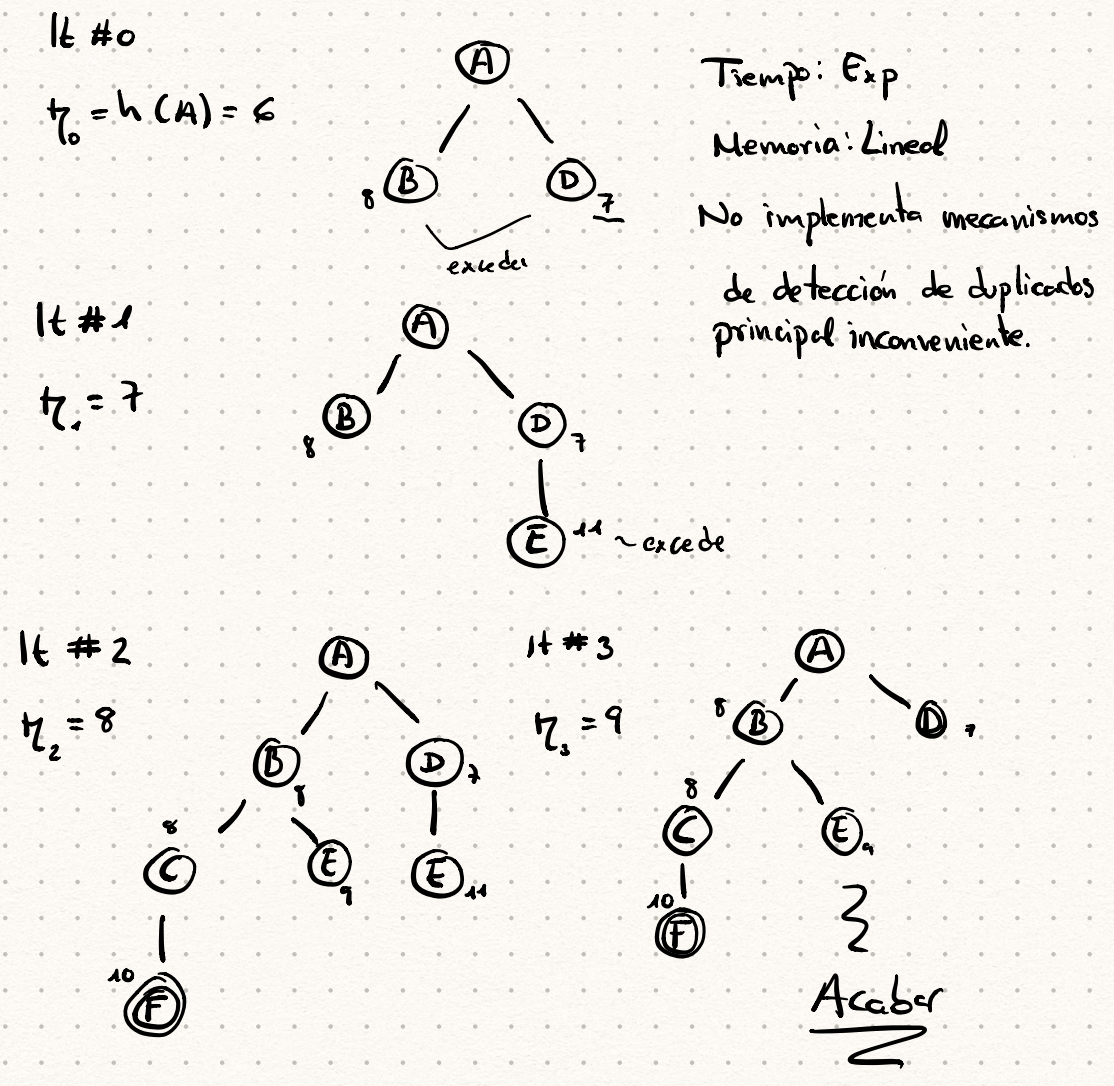 It #0
η₀ = h(A) = 6
A
8 B
D 7
exceder
Tiempo: Exp
Memoria: Lineal
No implementa mecanismos
de detección de duplicados
principal inconveniente.
It #1
η₁ = 7
A
B 8
D 7
E 11 ~ excede
It #2
η₂ = 8
A
B 8
D 7
8
C
E 9
E 11
10
F
It #3
η₃ = 9
A
8 B
D 7
8
C
E 9
10
F
Acabar